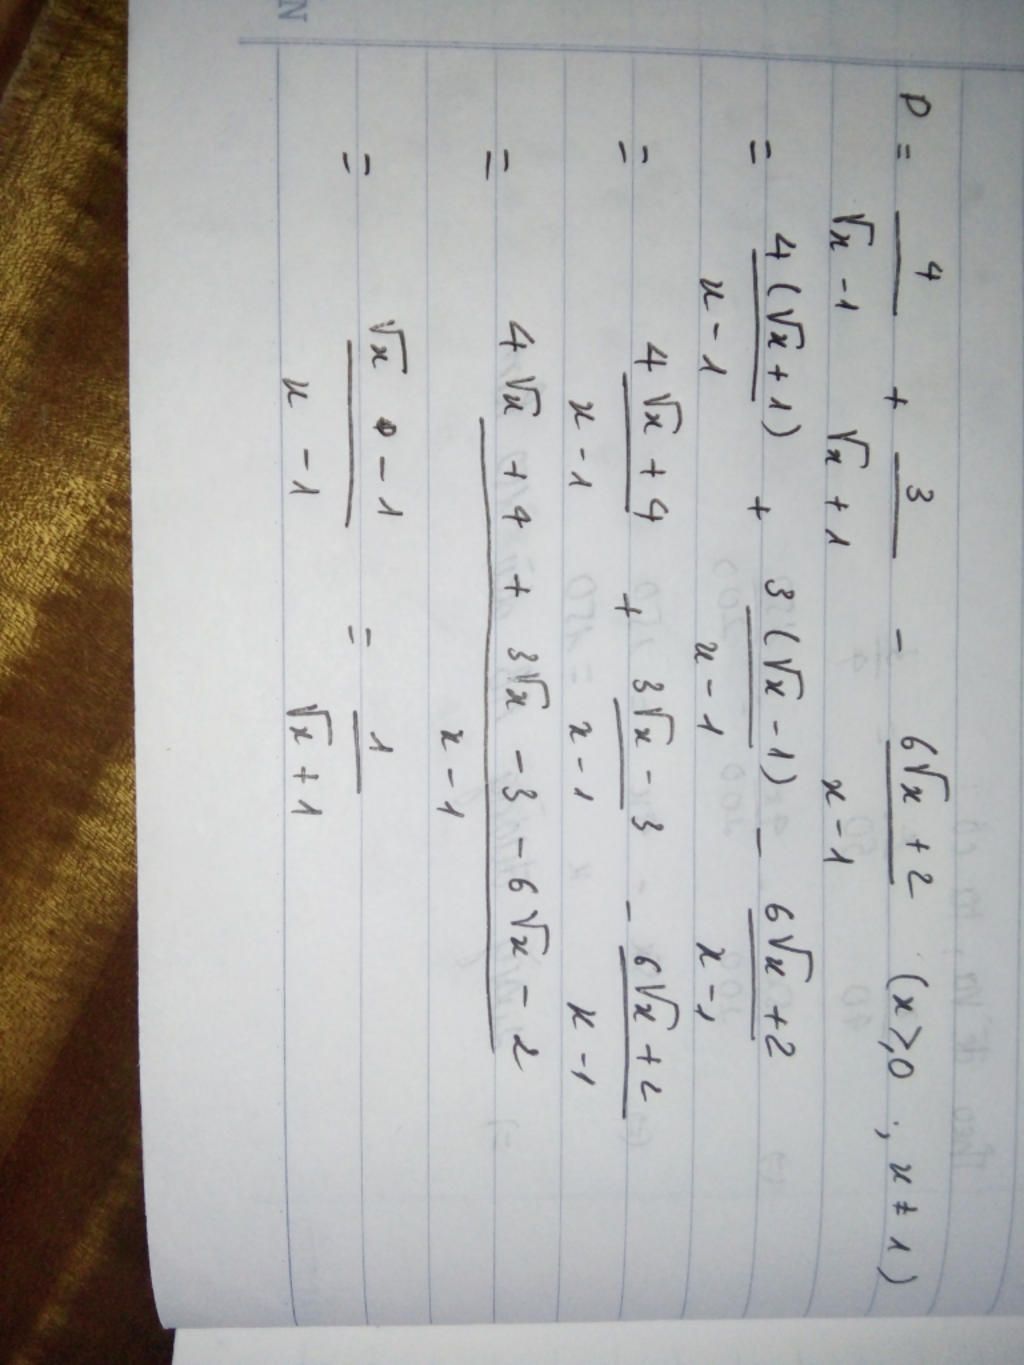 P = 4/(√x - 1) + 3/(√x + 1) - (6√x + 2)/(x - 1) (x ⩾ 0 ; x ≠ 1)
= 4(√x + 1)/(x - 1) + 3(√x - 1)/(x - 1) - (6√x + 2)/(x - 1)
= (4√x + 4)/(x - 1) + (3√x - 3)/(x - 1) - (6√x + 2)/(x - 1)
= (4√x + 4 + 3√x - 3 - 6√x - 2)/(x - 1)
= (√x - 1)/(x - 1) = 1/(√x + 1)